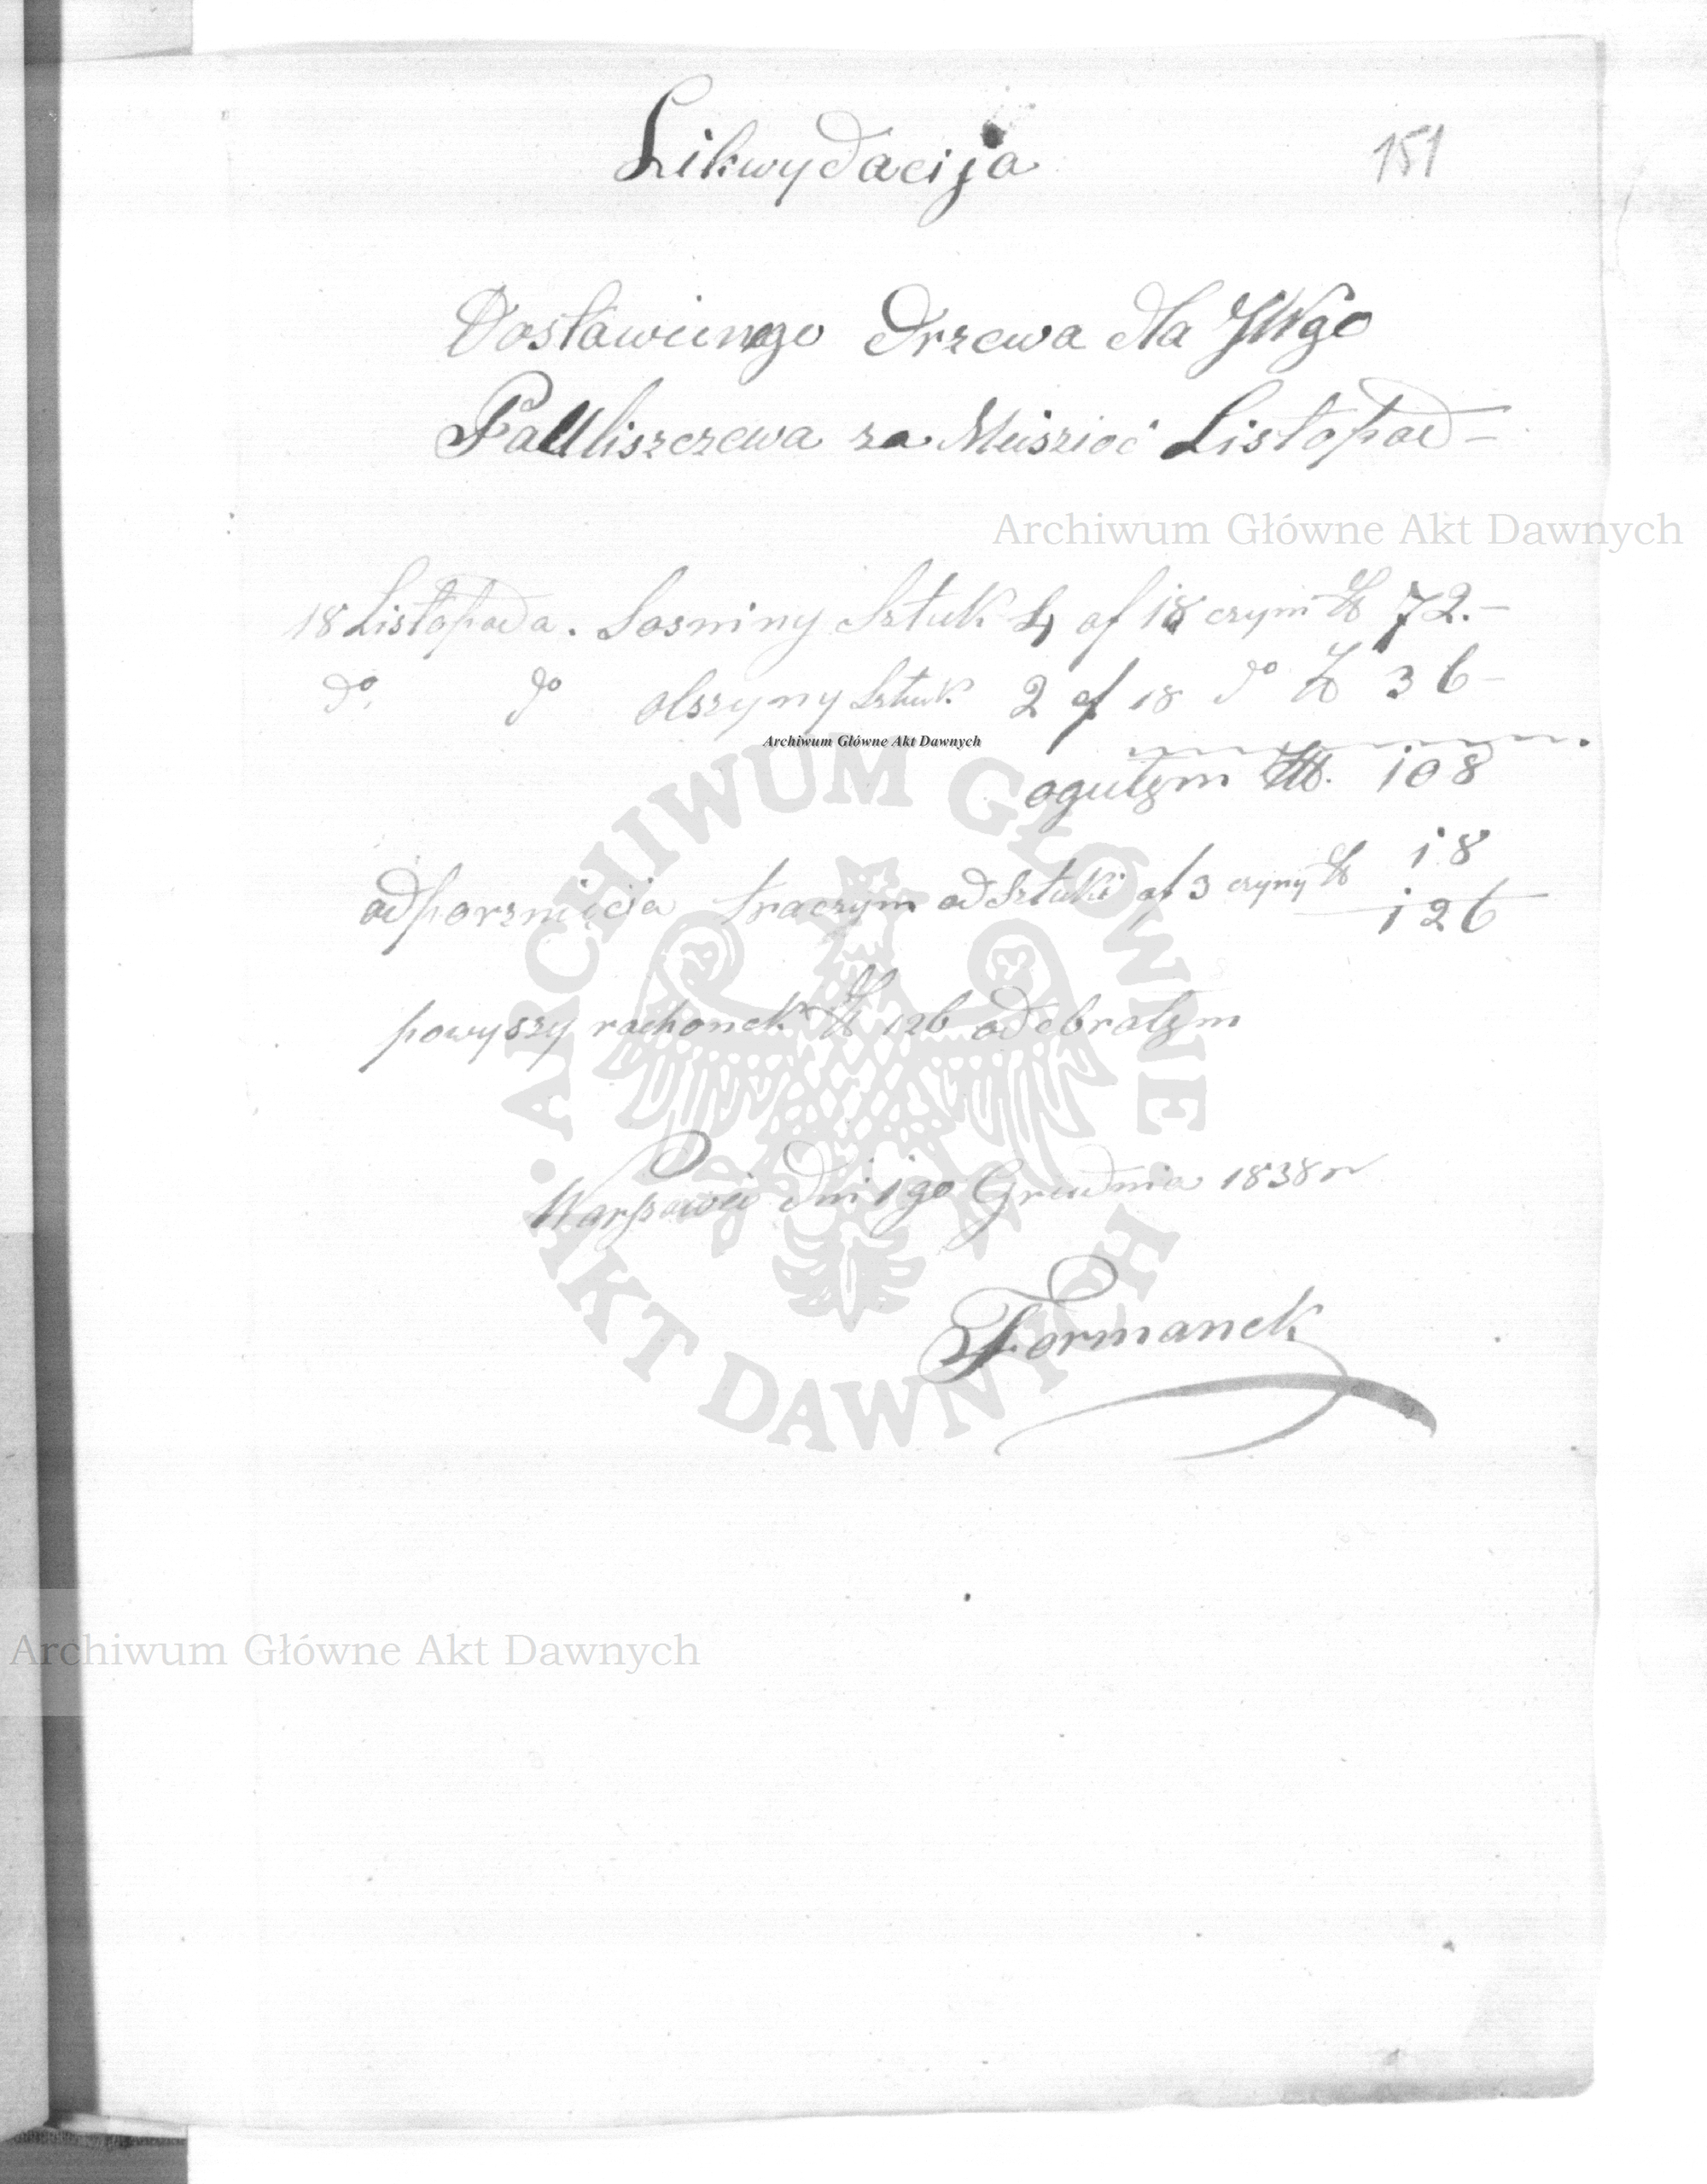 Likwydacija
151
Dostawiunego Drzewa dla JWgo
Pawliszczewa za Meisziąć Listopad -
Archiwum Główne Akt Dawnych
18 Listopada. Sosniny Sztuk 4 af 18 czyni zł 72.-
do. do olszyny Sztuk 2 af 18 do zł 36-
Archiwum Główne Akt Dawnych
ogułem zł. 108
odporznięcia traczym od Sztuki af 3 czyny zł 18
126
powyszy rachonek zł 126 odebrałem
Warszawie dni 1go Grudnia 1838 r
Formanek
ARCHIWUM GŁÓWNE · AKT DAWNYCH ·
Archiwum Główne Akt Dawnych